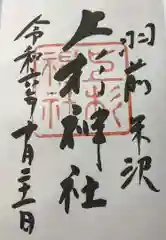 羽前米沢
上杉神社
上杉神社
令和六年十月二十一日